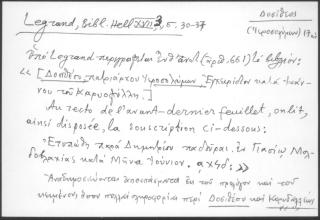 Legrand, Bibl. Hell XVII 3, σ. 30-37
Δοσίθεος
(Ἱεροσολύμων)
Ὑπὸ Legrand περιγράφεται (ἀρ. 661) τὸ βιβλίον:
"[Δοσιθέου πατριάρχου Ἱεροσολύμων Ἐγχειρίδιον κατὰ Ἰωάννου τοῦ Καρυοφύλλη.]
Au recto de l'avant-dernier feuillet, on lit,
ainsi disposée, la souscription ci-dessous:
Ἐτυπώθη παρὰ Δημητρίου Παδούρα. ἐν Γιασίῳ Μολδοβλαχίας κατὰ Μῆνα Ἰούνιον.
Ἀναδημοσιεύονται ἀποσπάσματα ἐκ τοῦ προλόγου καὶ τοῦ
κειμένου πληροφορία περὶ Δοσιθέου καὶ Καρυοφύλλη